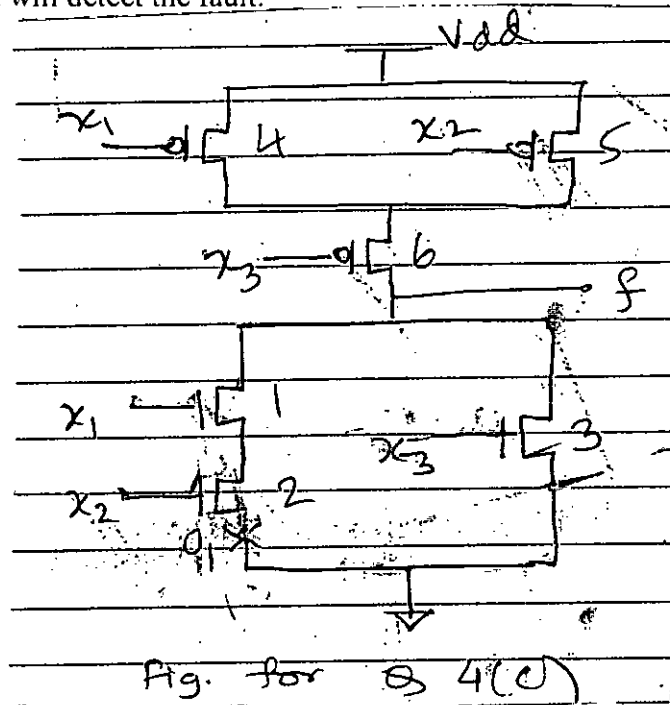 will detect the fault.
Vdd
x1 4 x2 5
x3 6
f
x1 1
x3 3
x2 2
O1
Fig. for Q 4(c)